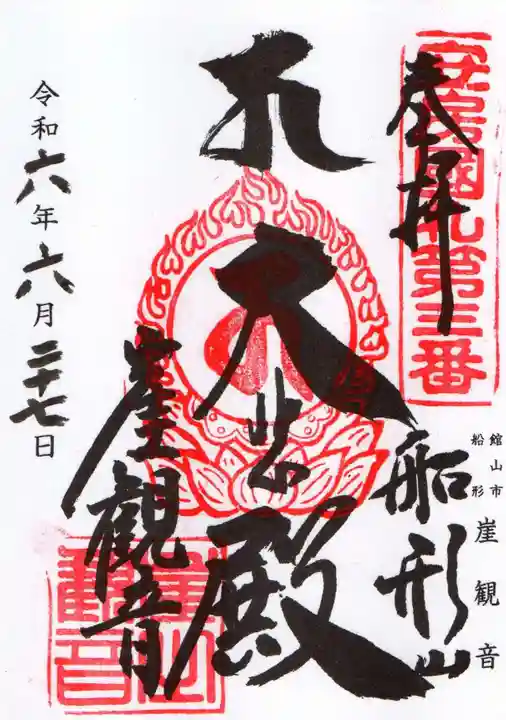 安房國札第三番
奉拝
船形山
館山市
船形
崖観音
大悲殿
崖観音
崖観音
令和六年六月二十七日